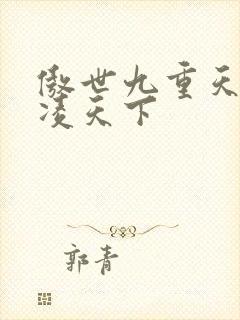 傲世九重天
凌天下
郭青